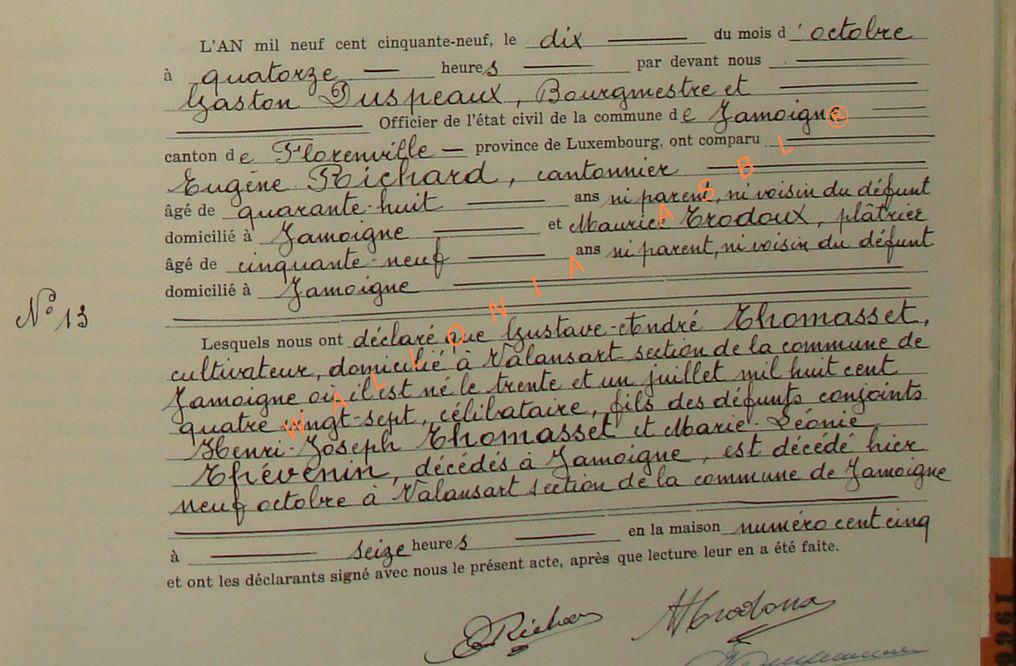 L'AN mil neuf cent cinquante-neuf, le dix du mois d'octobre
à quatorze heures par devant nous
Gaston Duspeaux, Bourgmestre et
Officier de l'état civil de la commune de Jamoigne
canton de Florenville province de Luxembourg, ont comparu
Eugène Richard, cantonnier
âgé de quarante-huit ans ni parent, ni voisin du défunt
domicilié à Jamoigne et Maurice Trodoux, plâtrier
âgé de cinquante-neuf ans ni parent, ni voisin du défunt
domicilié à Jamoigne
N° 13
Lesquels nous ont déclaré que Gustave-André Thomasset,
cultivateur, domicilié à Valansart section de la commune de
Jamoigne où il est né le trente et un juillet mil huit cent
quatre vingt-sept, célibataire, fils des défunts conjoints
Henri-Joseph Thomasset et Marie-Léonie
Thévenin, décédés à Jamoigne, est décédé hier
neuf octobre à Valansart section de la commune de Jamoigne
à seize heures en la maison numéro cent cinq
et ont les déclarants signé avec nous le présent acte, après que lecture leur en a été faite.
WALLONIA ASBL ®
ERichard